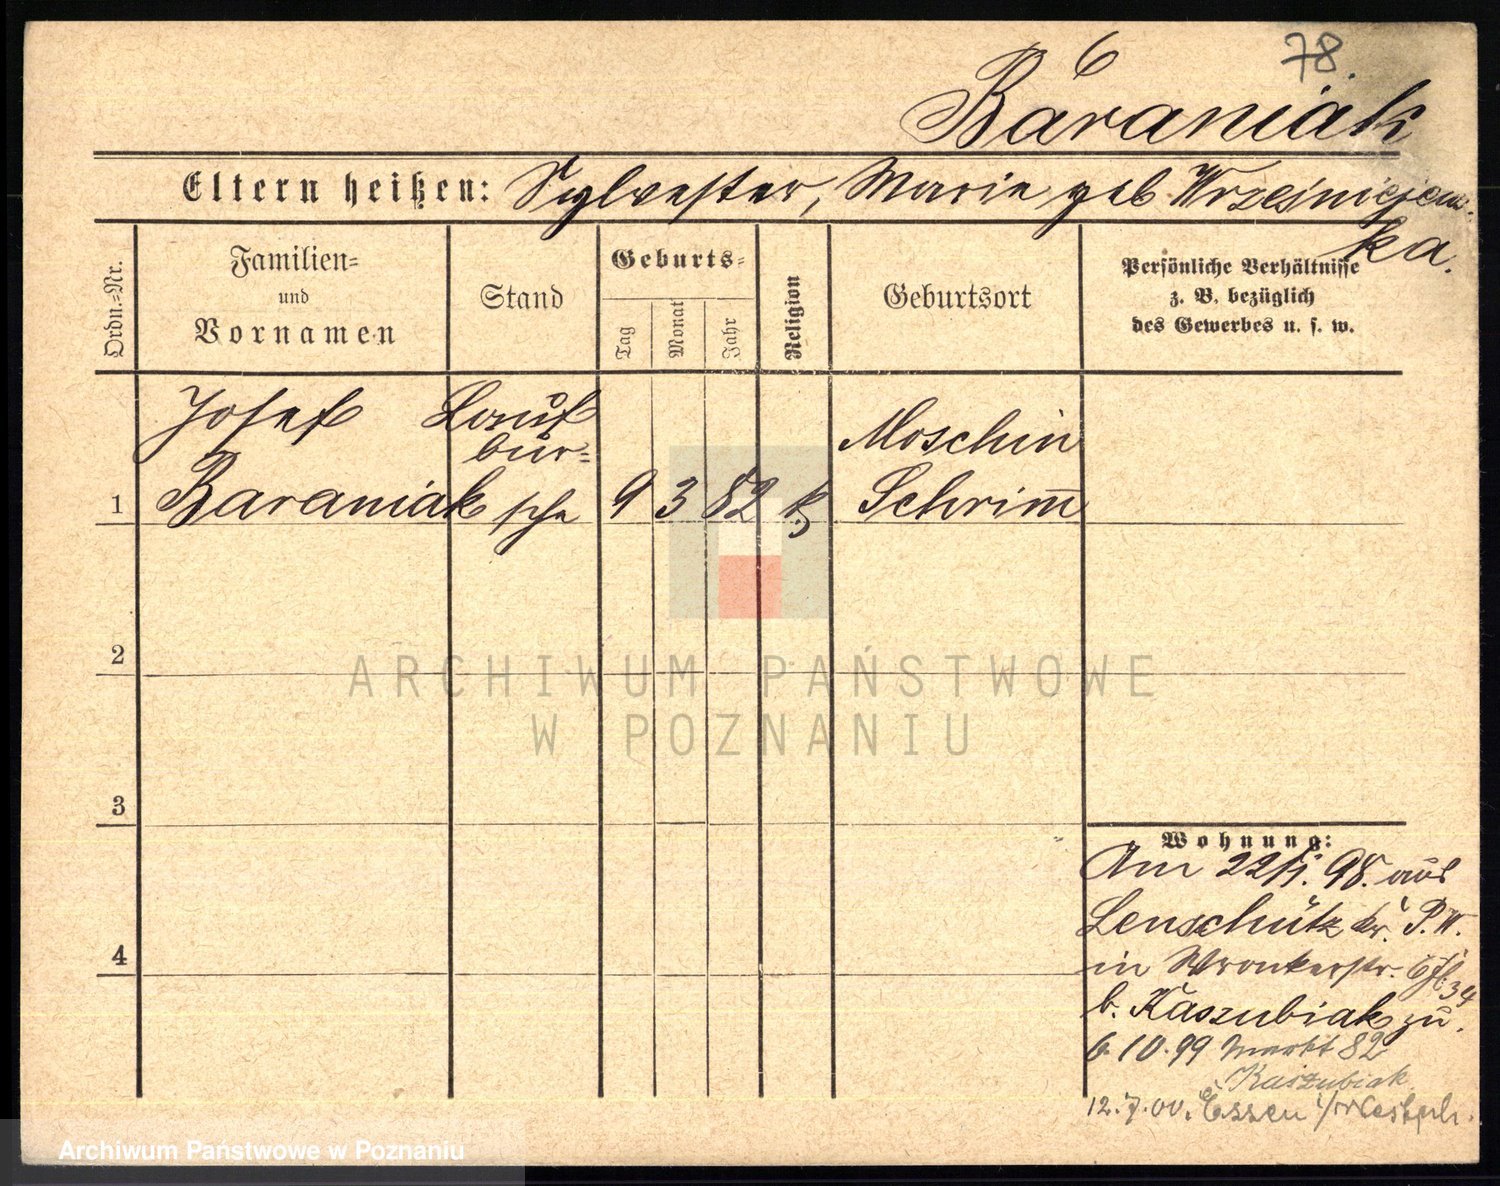 78.
6
Baraniak
Eltern heißen: Sylvester, Marie geb. Wrześniejews-
ka.
Ordn.-Nr.
Familien-
und
Vornamen
Stand
Geburts-
Tag
Monat
Jahr
Religion
Geburtsort
Persönliche Verhältnisse
z. B. bezüglich
des Gewerbes u. s. w.
Josef Lauf Moschin
bur-
1 Baraniak sche 9 3 82 k. Schrimm
2
3
4
ARCHIWUM PAŃSTWOWE
W POZNANIU
Wohnung:
Am 22/1. 98. aus
Lenschütz kr. P. W.
in Wronkerstr.
b. Kaszubiak zu.
6.10.99 Markt 82
Kaszubiak
12.7.00. Essen i/Westph.
Archiwum Państwowe w Poznaniu